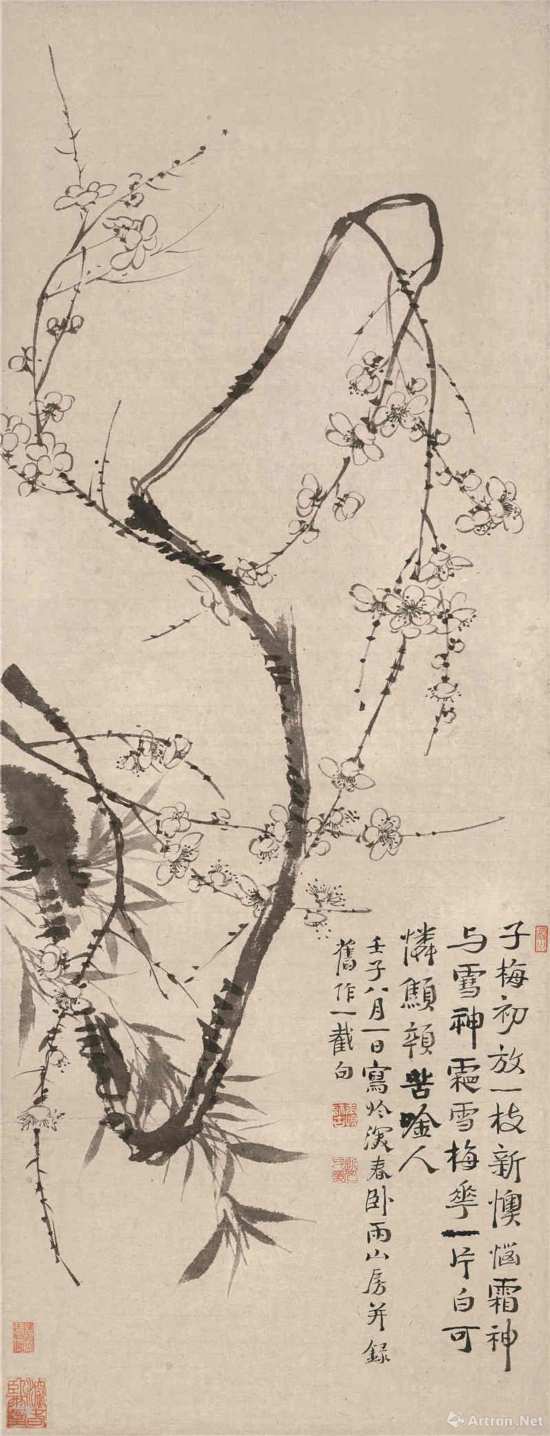 子梅初放一枝新懊惱霜神
与雪神霜雪梅華一片白可
憐顦顇苦唫人
壬子八月一日寫於演春臥雨山房并錄
舊作一截句
Artron.Net